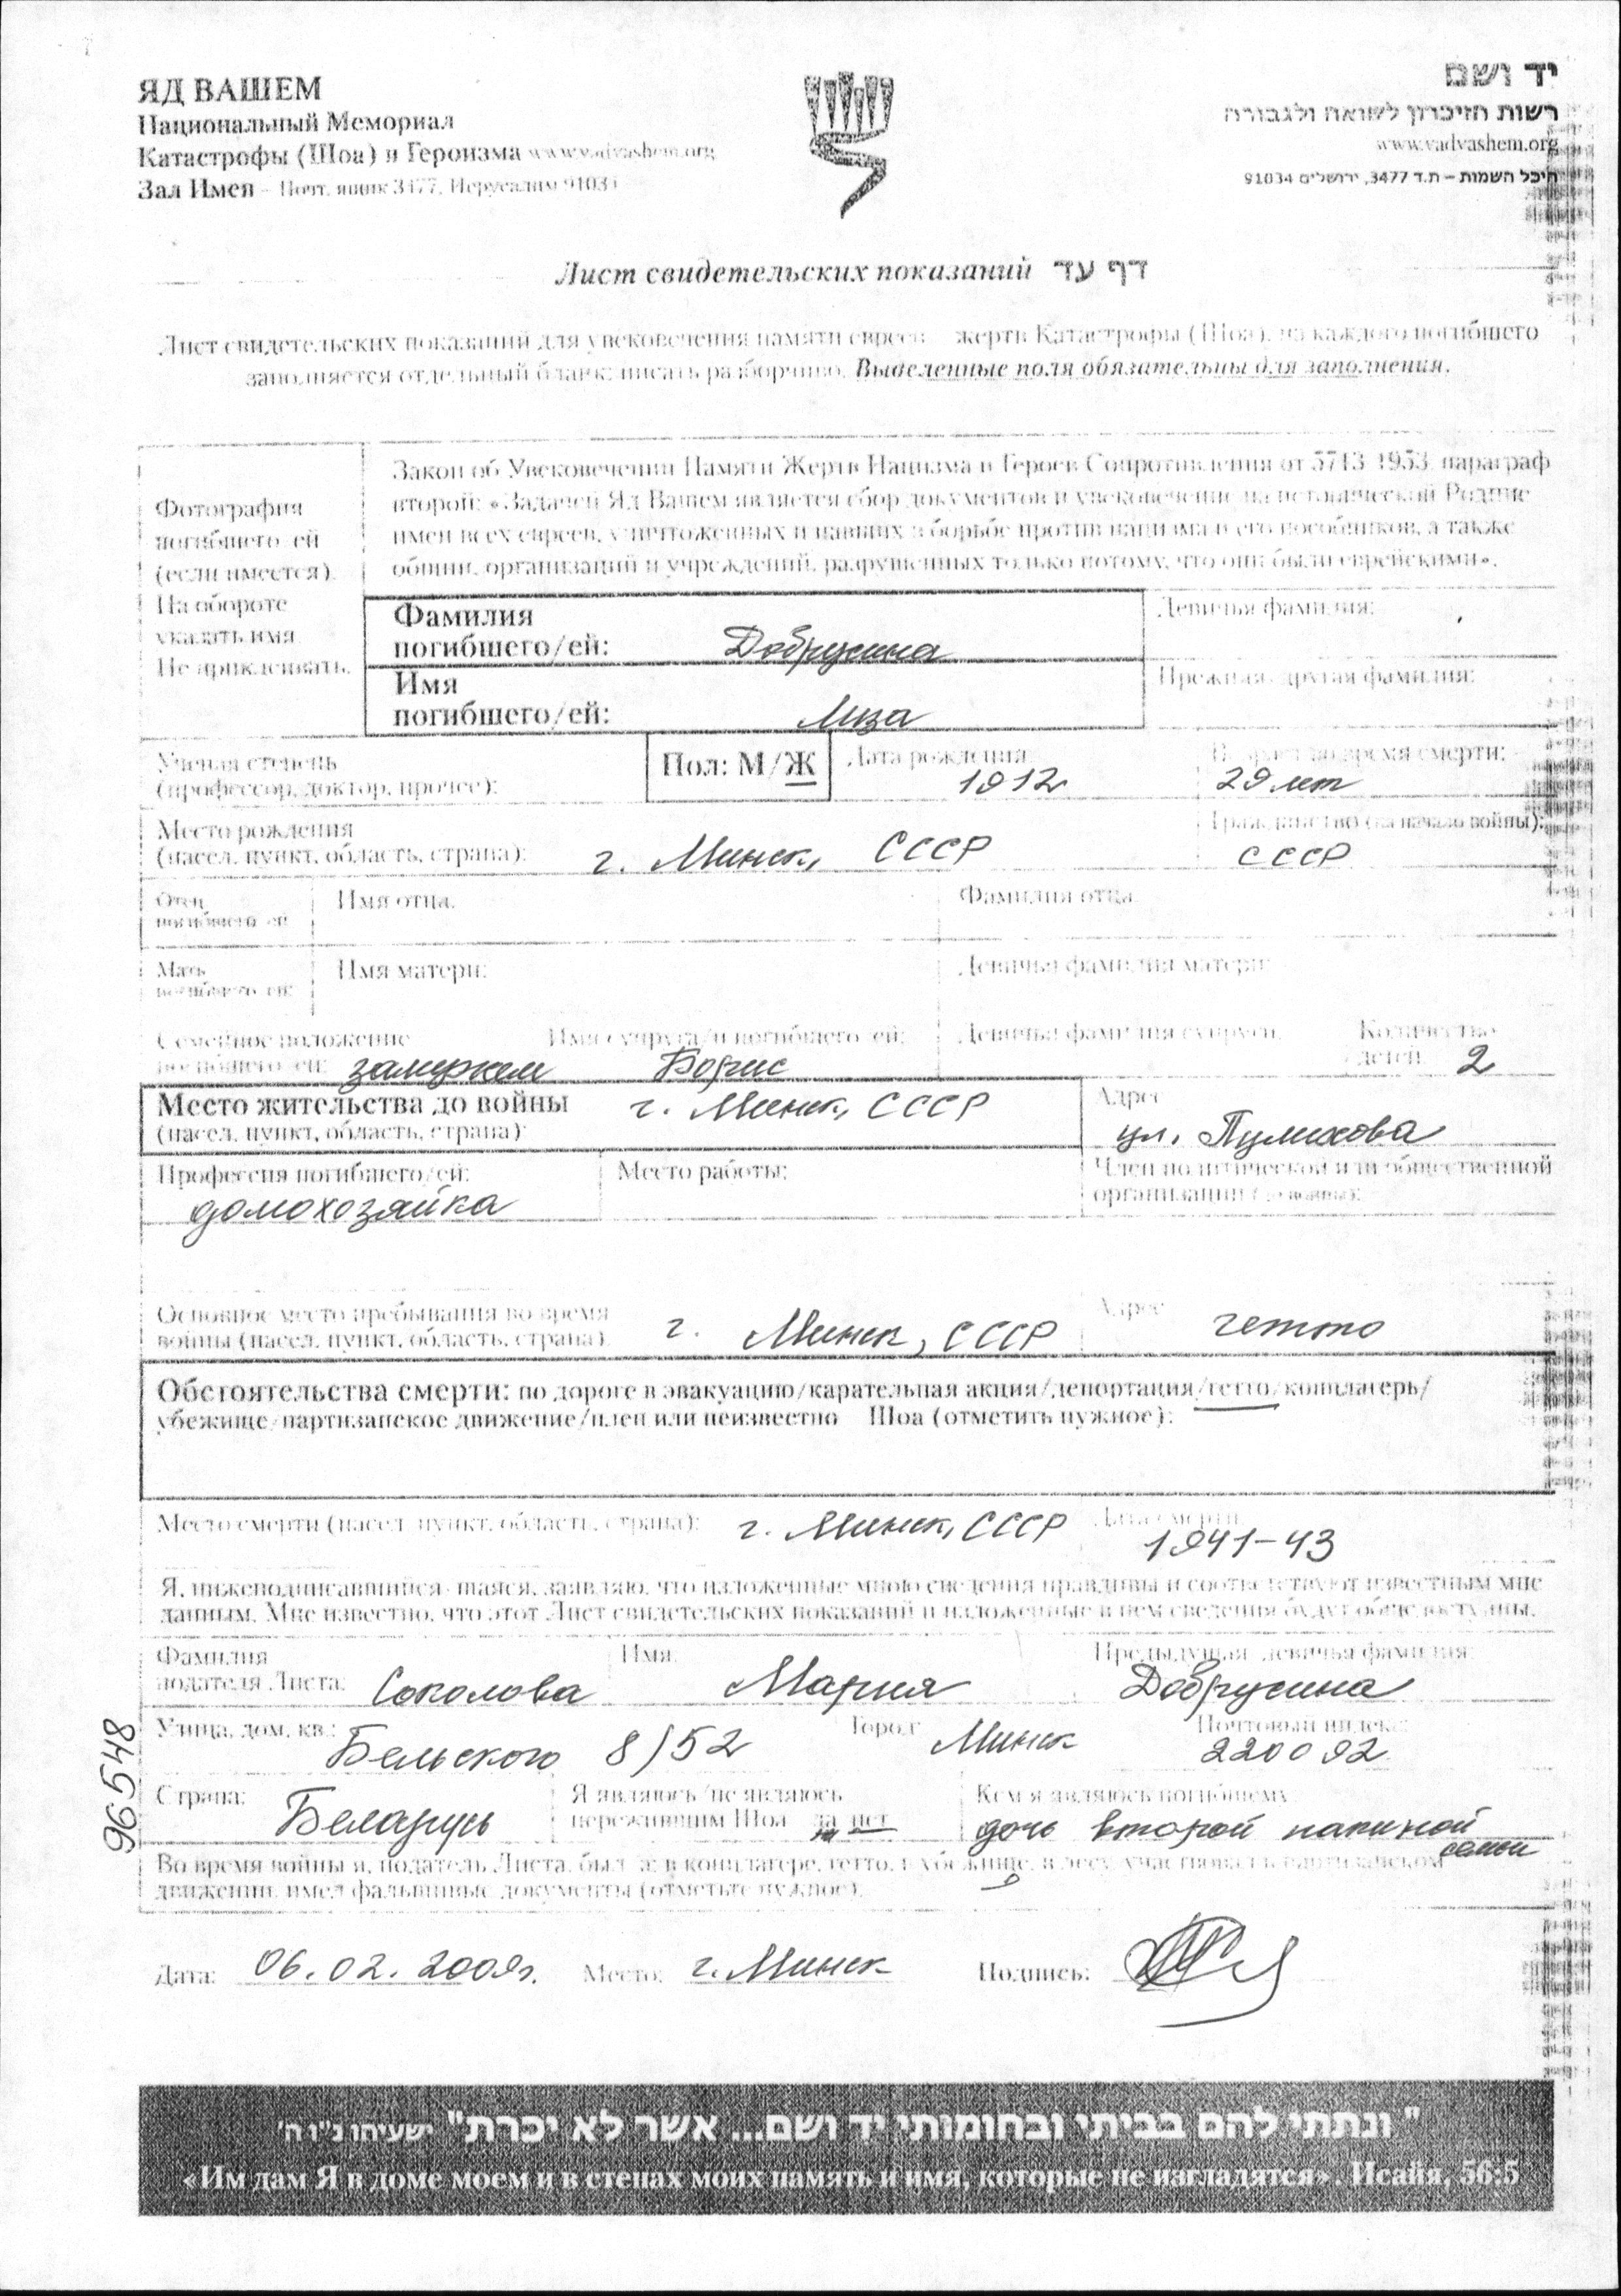 ЯД ВАШЕМ
Национальный Мемориал
Катастрофы (Шоа) и Героизма www.yadvashem.org
Зал Имен – Почт. ящик 3477, Иерусалим 91034
יד ושם
רשות הזיכרון לשואה ולגבורה
www.yadvashem.org
היכל השמות – ת.ד 3477, ירושלים 91034
Лист свидетельских показаний דף עד
Лист свидетельских показаний для увековечения памяти евреев – жертв Катастрофы (Шоа), на каждого погибшего
заполняется отдельный бланк; писать разборчиво. Выделенные поля обязательны для заполнения.
Фотография
погибшего/ей
(если имеется).
На обороте
указать имя.
Не приклеивать.
Закон об Увековечении Памяти Жертв Нацизма и Героев Сопротивления от 5713-1953, параграф
второй: «Задачей Яд Вашем является сбор документов и увековечение на исторической Родине
имен всех евреев, уничтоженных и павших в борьбе против нацизма и его пособников, а также
общин, организаций и учреждений, разрушенных только потому, что они были еврейскими».
Фамилия
погибшего/ей: Добрусина
Девичья фамилия:
Имя
погибшего/ей: Лиза
Прежняя/другая фамилия:
Ученая степень
(профессор, доктор, прочее):
Пол: М/Ж
Дата рождения: 1912
Возраст во время смерти: 29 лет
Место рождения
(насел. пункт, область, страна): г. Минск, СССР
Гражданство (на начало войны): СССР
Отец
погибшего/ей:
Имя отца:
Фамилия отца:
Мать
погибшего/ей:
Имя матери:
Девичья фамилия матери:
Семейное положение
погибшего/ей: замужем
Имя супруга/и погибшего/ей: Борис
Девичья фамилия супруги:
Количество
детей: 2
Место жительства до войны г. Минск, СССР
(насел. пункт, область, страна):
Адрес:
ул. Пулихова
Профессия погибшего/ей:
домохозяйка
Место работы:
Член политической или общественной
организации (до войны):
Основное место пребывания во время
войны (насел. пункт, область, страна): г. Минск, СССР
Адрес: гетто
Обстоятельства смерти: по дороге в эвакуацию/карательная акция/депортация/гетто/концлагерь/
убежище/партизанское движение/плен или неизвестно – Шоа (отметить нужное):
Место смерти (насел. пункт, область, страна): г. Минск, СССР
Дата смерти: 1941-43
Я, нижеподписавшийся/шаяся, заявляю, что изложенные мною сведения правдивы и соответствуют известным мне
данным. Мне известно, что этот Лист свидетельских показаний и изложенные в нем сведения будут общедоступны.
Фамилия
подателя Листа: Соколова
Имя: Мария
Предыдущая/девичья фамилия:
Добрусина
Улица, дом, кв.: Бельского 8/52
Город: Минск
Почтовый индекс:
220092
Страна: Беларусь
Я являюсь/не являюсь
пережившим Шоа да нет
Кем я являюсь погибшему
дочь второй папиной
семьи
Во время войны я, податель Листа, был/а: в концлагере, гетто, в убежище, в лесу, участвовал в партизанском
движении, имел фальшивые документы (отметьте нужное).
96548
Дата: 06.02.2009г. Место: г. Минск Подпись:
"ונתתי להם בביתי ובחומותי יד ושם... אשר לא יכרת" ישעיהו נ"ו ה'
«Им дам Я в доме моем и в стенах моих память и имя, которые не изгладятся». Исайя, 56:5